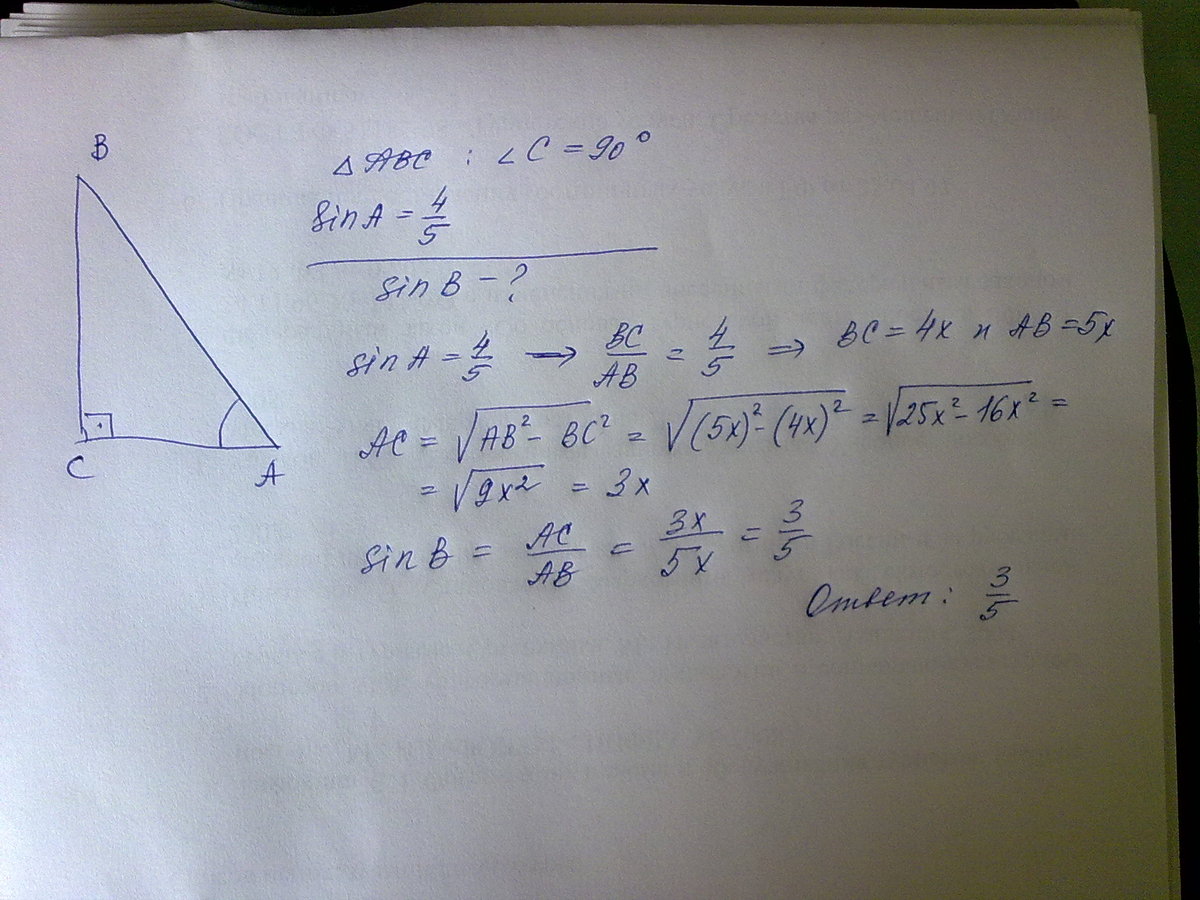 B
C
A
△ ABC : ∠ C = 90°
sin A = 4/5
sin B - ?
sin A = 4/5 → BC/AB = 4/5 ⇒ BC = 4x и AB = 5x
AC = √(AB² - BC²) = √((5x)² - (4x)²) = √(25x² - 16x²) =
= √(9x²) = 3x
sin B = AC/AB = 3x/5x = 3/5
Ответ: 3/5